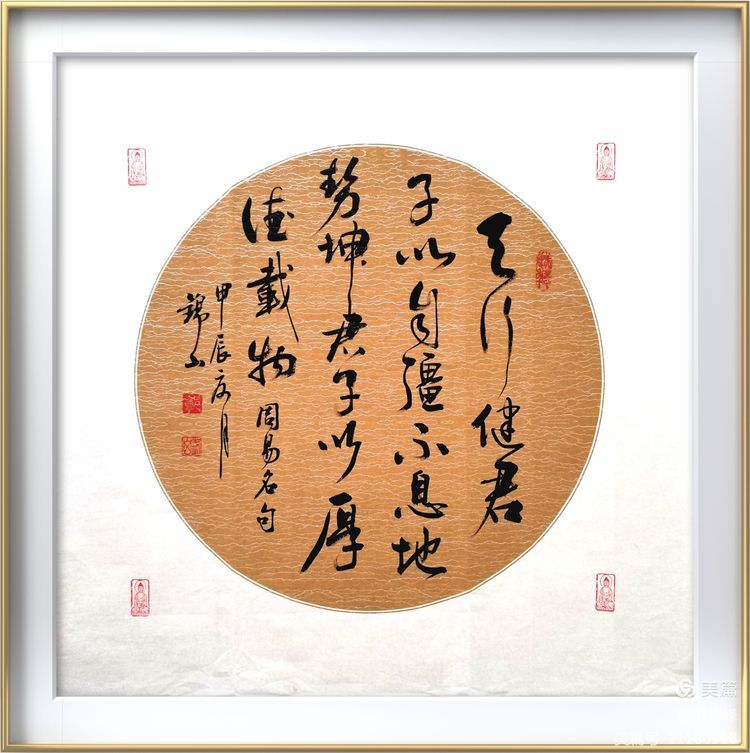 天行健君
子以自彊不息地
势坤君子以厚
德载物
周易名句
甲辰夏月
锦山
美篇